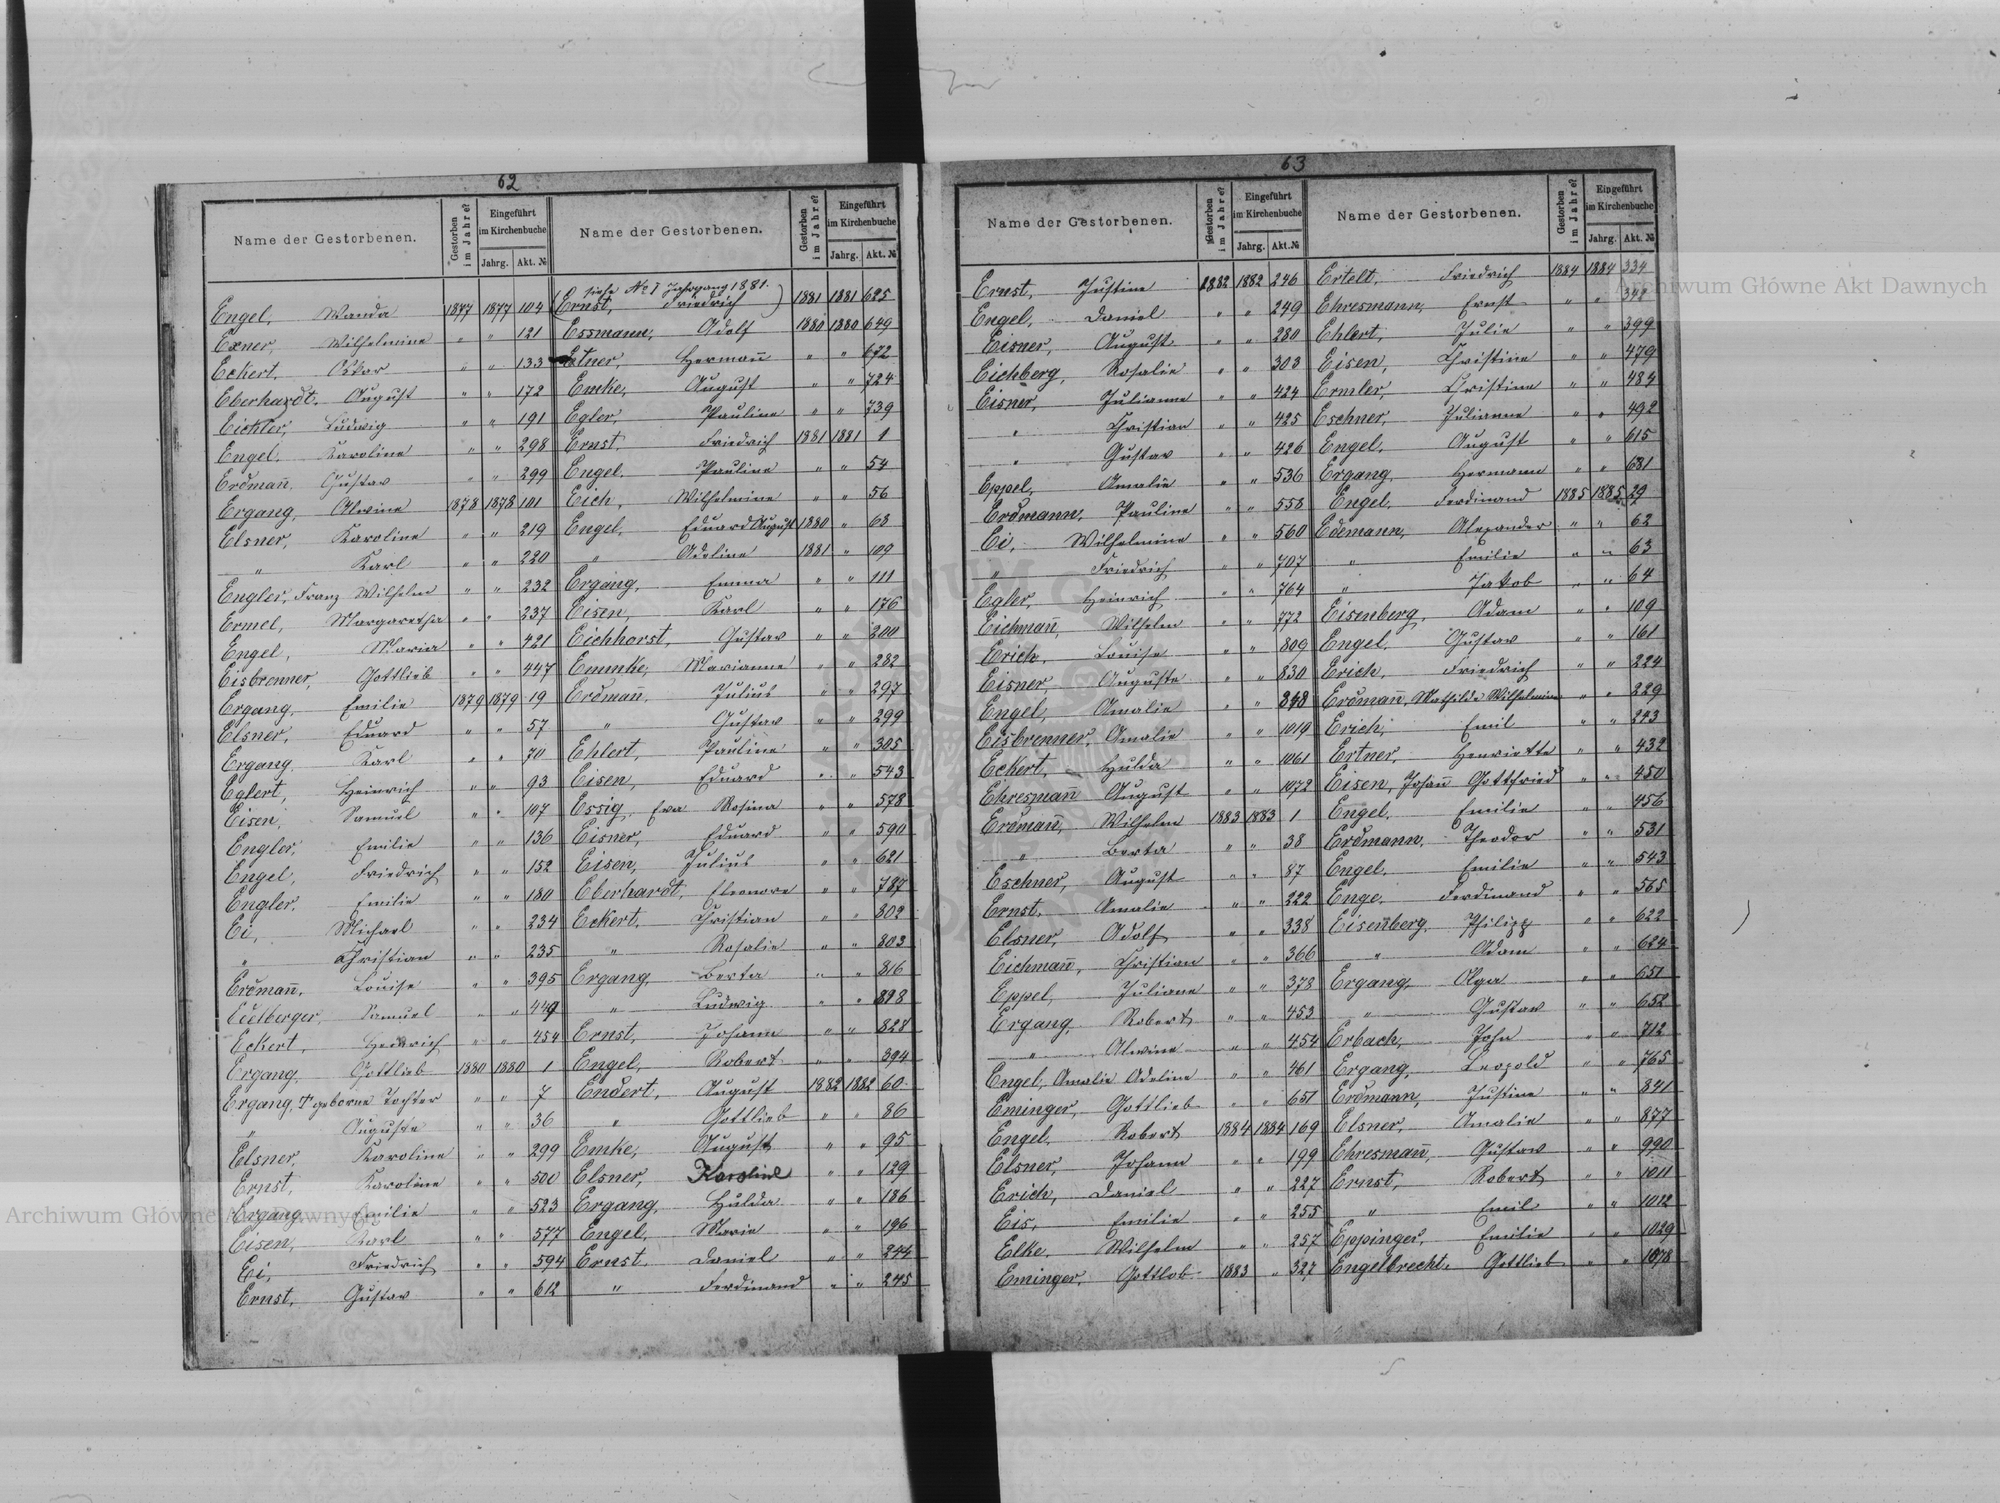 62
Name der Gestorbenen. Gestorben im Jahre? Eingeführt im Kirchenbuche Jahrg. Akt. №
Engel, Wanda 1877 1877 104
Exner, Wilhelmine " " 121
Eckert, Oskar " " 133
Eberhardt, August " " 172
Eichler, Ludwig " " 191
Engel, Karoline " " 298
Erdmañ, Gustav " " 299
Ergang, Alwine 1878 1878 101
Elsner, Karoline " " 219
" Karl " " 220
Engler, Franz Wilhelm " " 232
Ermel, Margaretha " " 237
Engel, Maria " " 421
Eisbrenner, Gottlieb " " 447
Ergang, Emilie 1879 1879 19
Elsner, Eduard " " 57
Ergang, Karl " " 70
Eglert, Heinrich " " 93
Eisen, Samuel " " 107
Engler, Emilie " " 136
Engel, Friedrich " " 152
Engler, Emilie " " 180
Ei, Michael " " 234
" Christian " " 235
Erdmañ, Louise " " 395
Samuel " " 449
Eckert, " " 454
Ergang, Gottlieb 1880 1880 1
Ergang, geborne Tochter " " 7
" Auguste " " 36
Elsner, Karoline " " 299
Ernst, Karoline " " 500
Ergang, Emilie " " 523
Eisen, Karl " " 577
Ei, Friedrich " " 594
Ernst, Gustav " " 612
Name der Gestorbenen. Gestorben im Jahre? Eingeführt im Kirchenbuche Jahrg. Akt. №
siehe № 1 Jahrgang 1881.
(Ernst, Friedrich) 1881 1881 625
Essmann, Adolf 1880 1880 649
Hermañ " " 672
Emke, August " " 724
Egler, Pauline " " 739
Ernst, Friedrich 1881 1881 1
Engel, Pauline " " 54
Eich, Wilhelmine " " 56
Engel, Eduard August 1880 " 68
" Adeline 1881 " 109
Ergang, Emma " " 111
Eisen, Karl " " 176
Eichhorst, Gustav " " 200
Emmke, Marianne " " 282
Erdmañ, Julius " " 297
" Gustav " " 299
Ehlert, Pauline " " 305
Eisen, Eduard " " 543
Essig, Eva Rosina " " 578
Eisner, Eduard " " 590
Eisen, Julius " " 621
Eberhardt, Eleonore " " 787
Eckert, Christian " " 802
" Rosalie " " 803
Ergang, Berta " " 816
" Ludwig " "
Ernst, Johann " " 828
Engel, Robert " " 394
Endert, August 1882 1882 60
" Gottlieb " " 86
Emke, August " " 95
Elsner, Karoline " " 129
Ergang, Hulda " " 186
Engel, Marie " " 196
Ernst, Daniel " " 244
" Ferdinand " " 245
63
Name der Gestorbenen. Gestorben im Jahre? Eingeführt im Kirchenbuche Jahrg. Akt. №
Ernst, Justine 1882 1882 246
Engel, Daniel " " 249
Eisner, August " " 280
Eichberg, Rosalie " " 303
Eisner, Julianne " " 424
" Christian " " 425
" Gustav " " 426
Eppel, Amalie " " 536
Erdmann, Pauline " " 558
Ei, Wilhelmine " " 560
" Friedrich " " 707
Egler, Heinrich " " 764
Eichmañ, Wilhelm " " 772
Erich, Louise " " 809
Eisner, Auguste " " 830
Engel, Amalie " "
Eisbrenner, Amalie " " 1019
Eckert, Hulda " " 1061
Ehresmañ August " " 1072
Erdmañ, Wilhelm 1883 1883 1
" Berta " " 38
Eschner, August " " 87
Ernst, Amalie " " 222
Elsner, Adolf " " 338
Eichmañ, Christian " " 366
Eppel, Juliane " " 378
Ergang, Robert " " 453
" Alwine " " 454
Engel, Amalie Adeline " " 461
Eminger, Gottlieb " " 651
Engel, Robert 1884 1884 169
Elsner, Johann " " 199
Erich, Daniel " " 227
Eis, Emilie " " 255
Elke, Wilhelm " " 257
Eminger, Gottlob 1883 " 327
Name der Gestorbenen. Gestorben im Jahre? Eingeführt im Kirchenbuche Jahrg. Akt. №
Ertelt, Friedrich 1884 1884 334
Ehresmann, Ernst " " 348
Ehlert, Julie " " 399
Eisen, Christine " " 479
Ermler, Christine " " 484
Eschner, Julianne " " 492
Engel, August " " 615
Ergang, Hermann " " 681
Engel, Ferdinand 1885 1885 29
Edemann, Alexander " " 62
" Emilie " " 63
" Jakob " " 64
Eisenberg, Adam " " 109
Engel, Gustav " " 161
Erich, Friedrich " " 224
Erdmañ, Mathilde Wilhelmine " " 229
Erich, Emil " " 243
Ertner, Henriette " " 432
Eisen, Johañ Gottfried " " 450
Engel, Emilie " " 456
Erdmann, Theodor " " 531
Engel, Emilie " " 543
Enge, Ferdinand " " 565
Eisenberg, Philipp " " 622
" Adam " " 624
Ergang, Olga " " 651
" Gustav " " 652
Erbach, John " " 712
Ergang, Leopold " " 765
Erdmann, Justine " " 841
Elsner, Amalie " " 877
Ehresmañ, Gustav " " 990
Ernst, Robert " " 1011
" Emil " " 1012
Eppinger, Emilie " " 1029
Engelbrecht, Gottlieb " " 1078
Archiwum Główne Akt Dawnych
Archiwum Główne Akt Dawnych